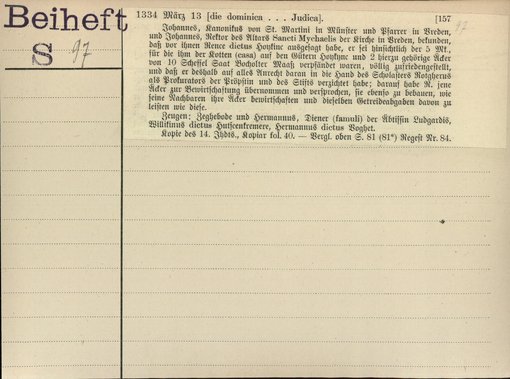 Beiheft
S 97
1334 März 13 [die dominica . . . Judica]. [157
97
Johannes, Kanonikus von St. Martini in Münster und Pfarrer in Vreden,
und Johannes, Rektor des Altars Sancti Mychaelis der Kirche in Vreden, bekunden,
daß vor ihnen Rence dictus Hoykinc ausgesagt habe, er sei hinsichtlich der 5 Mk.
für die ihm der Kotten (casa) auf den Gütern Hoykync und 2 hierzu gehörige Äcker
von 10 Scheffel Saat Bocholter Maaß verpfändet waren, völlig zufriedengestellt,
und daß er deshalb auf alles Anrecht daran in die Hand des Scholasters Rotgherus
als Prokurators der Pröpstin und des Stifts verzichtet habe; darauf habe R. jene
Äcker zur Bewirtschaftung übernommen und versprochen, sie ebenso zu bebauen, wie
seine Nachbaren ihre Äcker bewirtschaften und dieselben Getreideabgaben davon zu
leisten wie diese.
Zeugen: Zeghebode und Hermannus, Diener (famuli) der Äbtissin Ludgardis,
Willikinus dictus Huffcenkremere, Hermannus dictus Voghet.
Kopie des 14. Jhdts., Kopiar fol. 40. — Vergl. oben S. 81 (81*) Regest Nr. 84.